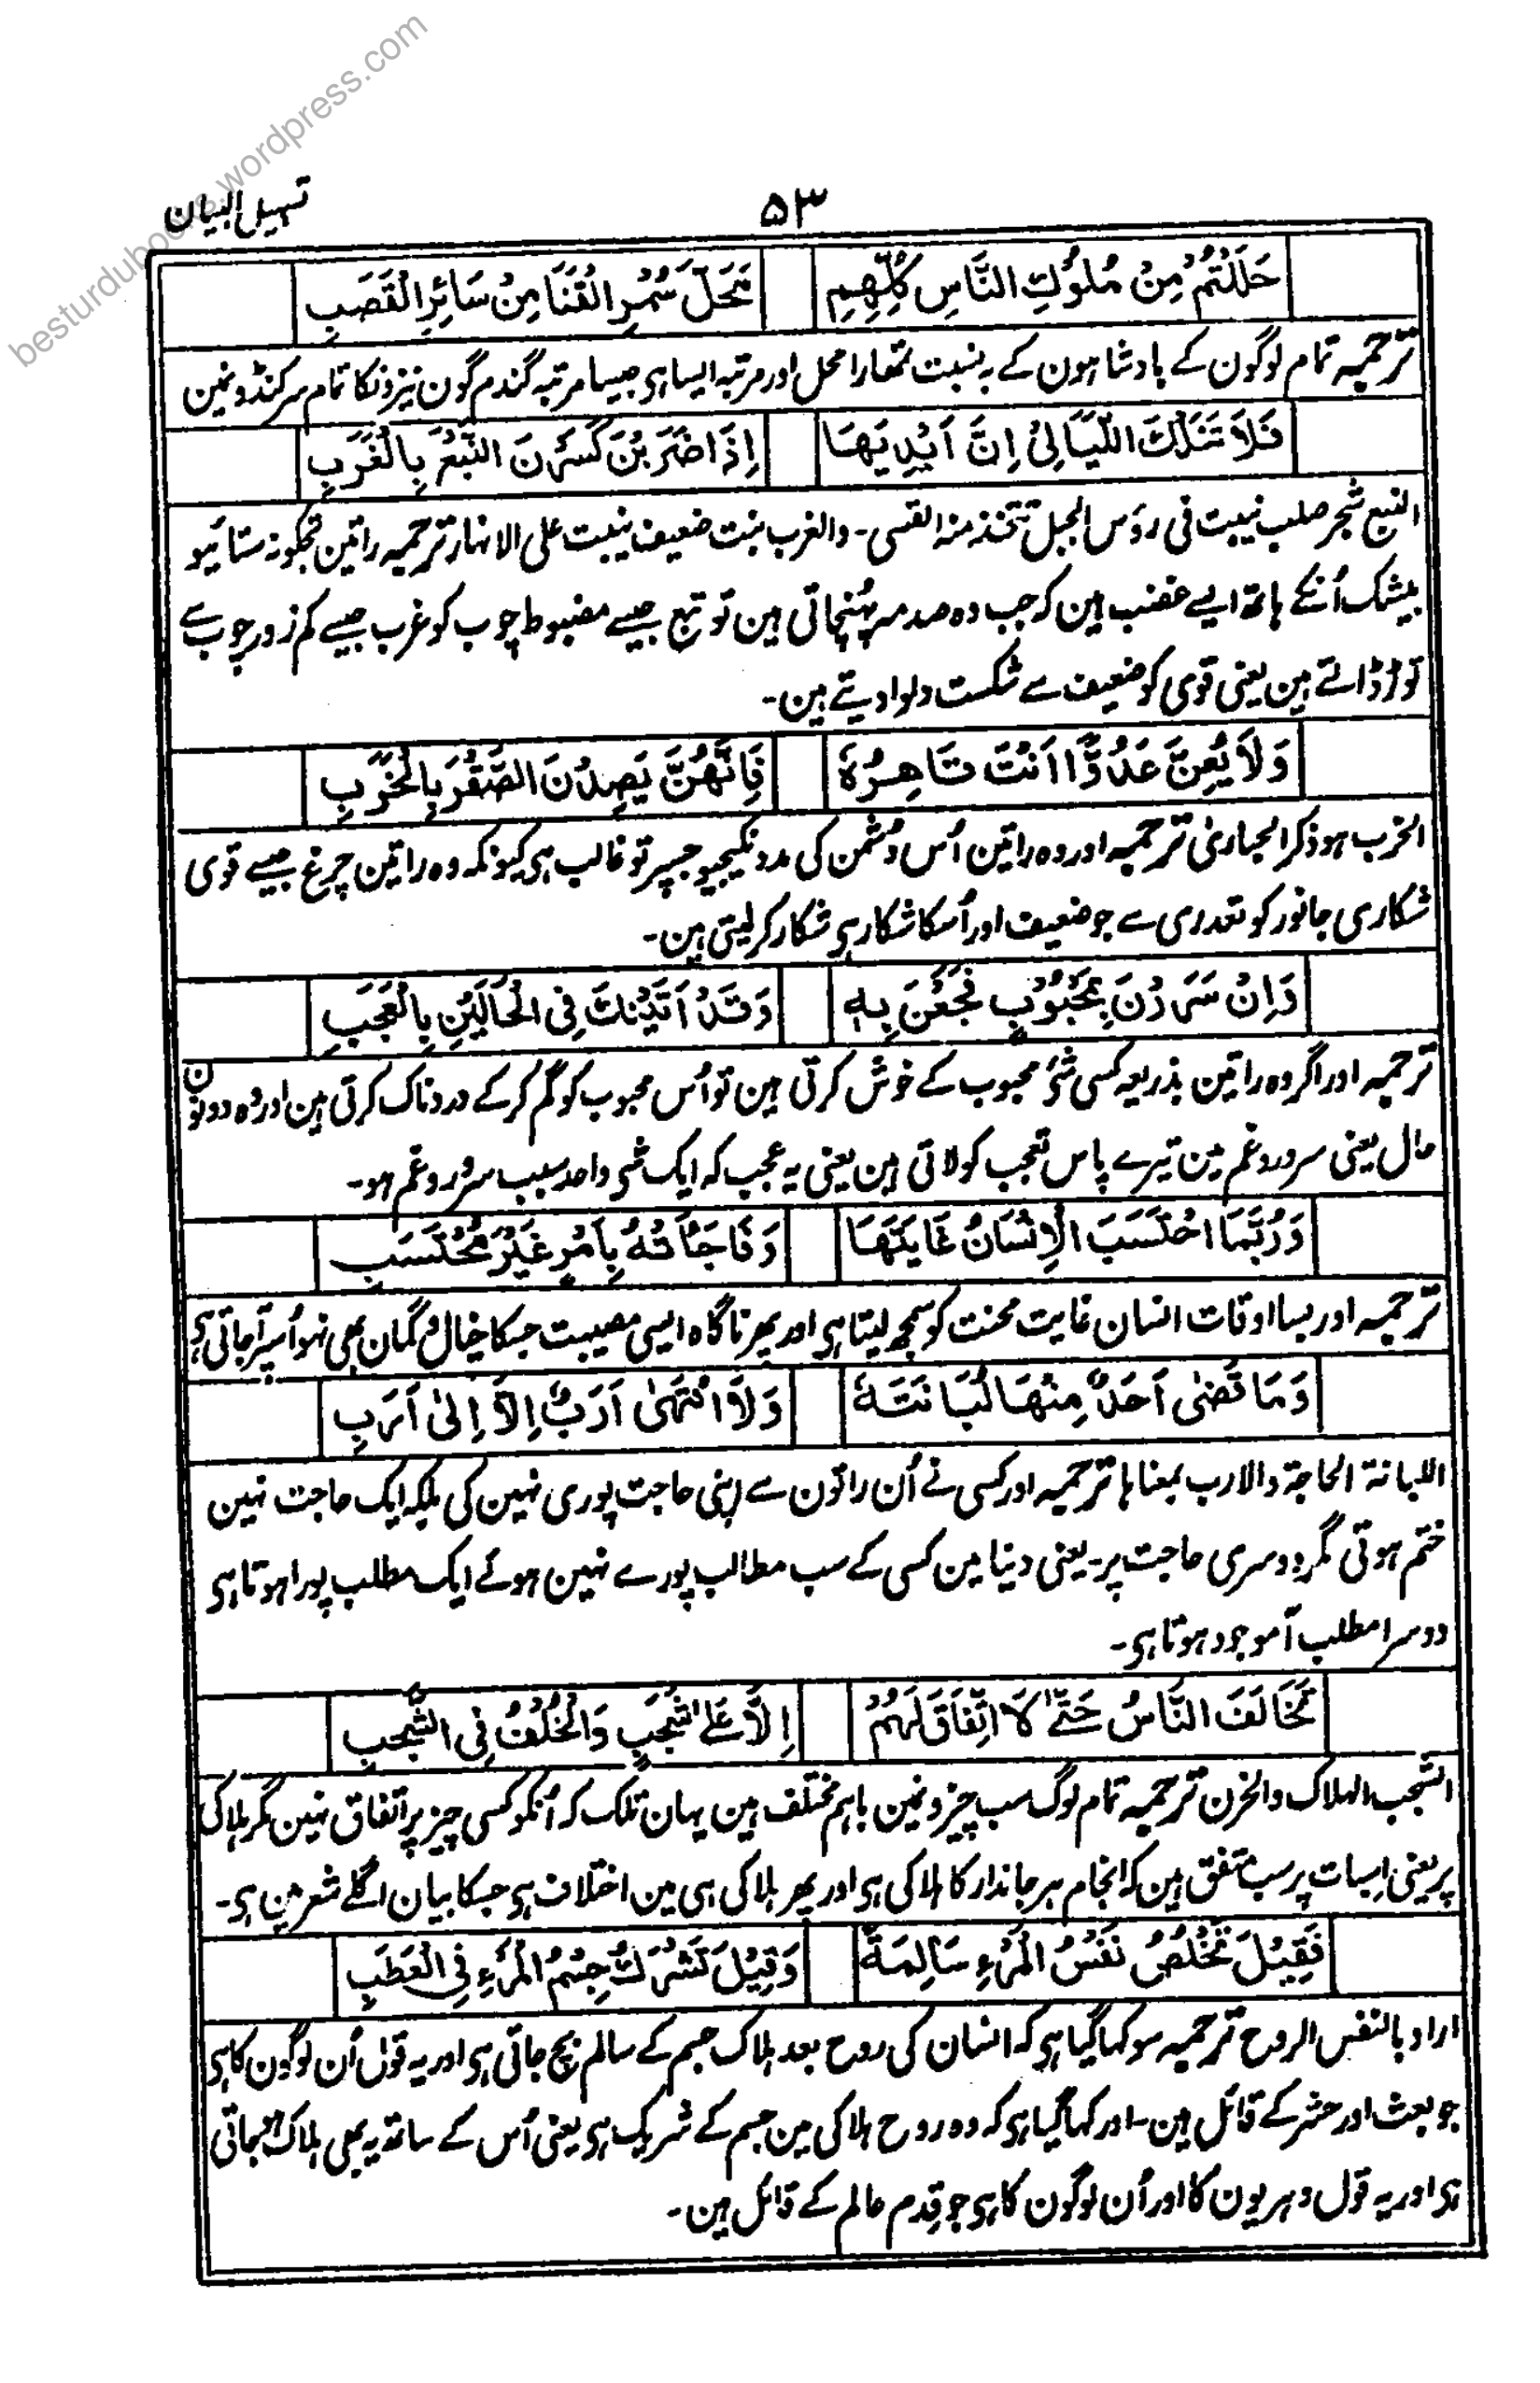 besturdubooks.wordpress.com
۵۳
تسہیل البیان
حَلَلْتُمْ مِنْ مُلُوْكِ النَّاسِ كُلِّهِمِ مَحَلَّ سُمْرِ الْقَنَا مِنْ سَائِرِ الْقَصَبِ
ترجمہ تمام لوگون کے بادشاہون کے بہ نسبت تمھارا محل اور مرتبہ ایسا ہی جیسا مرتبہ گندم گون نیزونکا تمام سرکنڈونمین
فَلَا تَنَلْكَ اللَّيَالِىْ اِنَّ اَيْدِيَهَا اِذَا ضَرَبْنَ كَسَرْنَ النَّبْعَ بِالْغَرَبِ
النبع شجر صلب ینبت فی رؤس الجبل تتخذ منہ القسی۔ والغرب نبت ضعیف ینبت علی الانہار ترجمہ راتین تجکو نہ ستائیو
بیشک اُنکے ہاتھ ایسے غضب ہین کہ جب وہ صدمہ پہُنچاتی ہین تو نبع جیسے مضبوط چوب کو غرب جیسے کم زور چوب سے
توڑ ڈالتے ہین یعنی قوی کو ضعیف سے شکست دلوا دیتے ہین۔
وَلَا يُعِنَّ عَدُوًّا اَنْتَ قَاهِرُهُ فَاِنَّهُنَّ يَصِدْنَ الصَّقْرَ بِالْخَرَبِ
الخرب ہو ذکر الحباریٰ ترجمہ اور وہ راتین اُس دُشمن کی مدد نکیجیو جسپر تو غالب ہی کیونکہ وہ راتین چرغ جیسے قوی
شکاری جانور کو تغدری سے جو ضعیف اور اُسکا شکار ہی شکار کر لیتی ہین۔
وَاِنْ سَرَرْنَ بِمَحْبُوْبٍ فَجَعْنَ بِهٖ وَقَدْ اَتَيْنَكَ فِى الْحَالَيْنِ بِالْعَجَبِ
ترجمہ اور اگر وہ راتین بذریعہ کسی شئ محبوب کے خوش کرتی ہین تو اُس محبوب کو گم کر کے دردناک کرتی ہین اور وہ دونون
حال یعنی سرور و غم مین تیرے پاس تعجب کو لاتی ہین یعنی یہ عجب کہ ایک شی واحد سبب سرور و غم ہو۔
وَرُبَّمَا احْتَسَبَ الْاِنْسَانُ غَايَتَهَا وَفَاجَأَتْهُ بِاَمْرٍ غَيْرِ مُحْتَسَبِ
ترجمہ اور بسا اوقات انسان غایت محنت کو سمجھ لیتا ہی اور پھر ناگاہ ایسی مصیبت جسکا خیال و گمان بھی نہو اُسپر آجاتی ہی
وَمَا قَضٰى اَحَدٌ مِنْهَا لُبَانَتَهُ وَلَا انْتَهٰى اَرَبٌ اِلَّا اِلٰى اَرَبِ
اللبانۃ الحاجۃ والارب بمعناہا ترجمہ اور کسی نے اُن راتون سے اپنی حاجت پوری نہین کی بلکہ ایک حاجت نہین
ختم ہوتی مگر دوسری حاجت پر۔ یعنی دنیا مین کسی کے سب مطالب پورے نہین ہوئے ایک مطلب پورا ہوتا ہی
دوسرا مطلب آموجود ہوتا ہی۔
تَخَالَفَ النَّاسُ حَتّٰى لَا اتِّفَاقَ لَهُمْ اِلَّا عَلٰى شَجَبٍ وَالْخُلْفُ فِى الشَّجَبِ
الشجب الہلاک والحزن ترجمہ تمام لوگ سب چیزونمین باہم مختلف ہین یہان تلک کہ اُنکو کسی چیز پر اتفاق نہین مگر ہلاکی
پر یعنی اِسبات پر سب متفق ہین کہ انجام ہر جاندار کا ہلاکی ہی اور پھر ہلاکی ہی مین اختلاف ہی جسکا بیان اگلے شعر مین ہی۔
فَقِيْلَ تَخْلُصُ نَفْسُ الْمَرْءِ سَالِمَةً وَقِيْلَ تَشْرَكُ جِسْمَ الْمَرْءِ فِى الْعَطَبِ
اراد بالنفس الروح ترجمہ سو کہا گیا ہی کہ انسان کی روح بعد ہلاک جسم کے سالم بچ جاتی ہی اور یہ قول اُن لوگون کا ہی
جو بعث اور حشر کے قائل ہین۔ اور کہا گیا ہی کہ وہ روح ہلاکی مین جسم کے شریک ہی یعنی اُس کے ساتھ یہ بھی ہلاک ہوجاتی
ہی اور یہ قول دہریون کا اور اُن لوگون کا ہی جو قِدم عالم کے قائل ہین۔